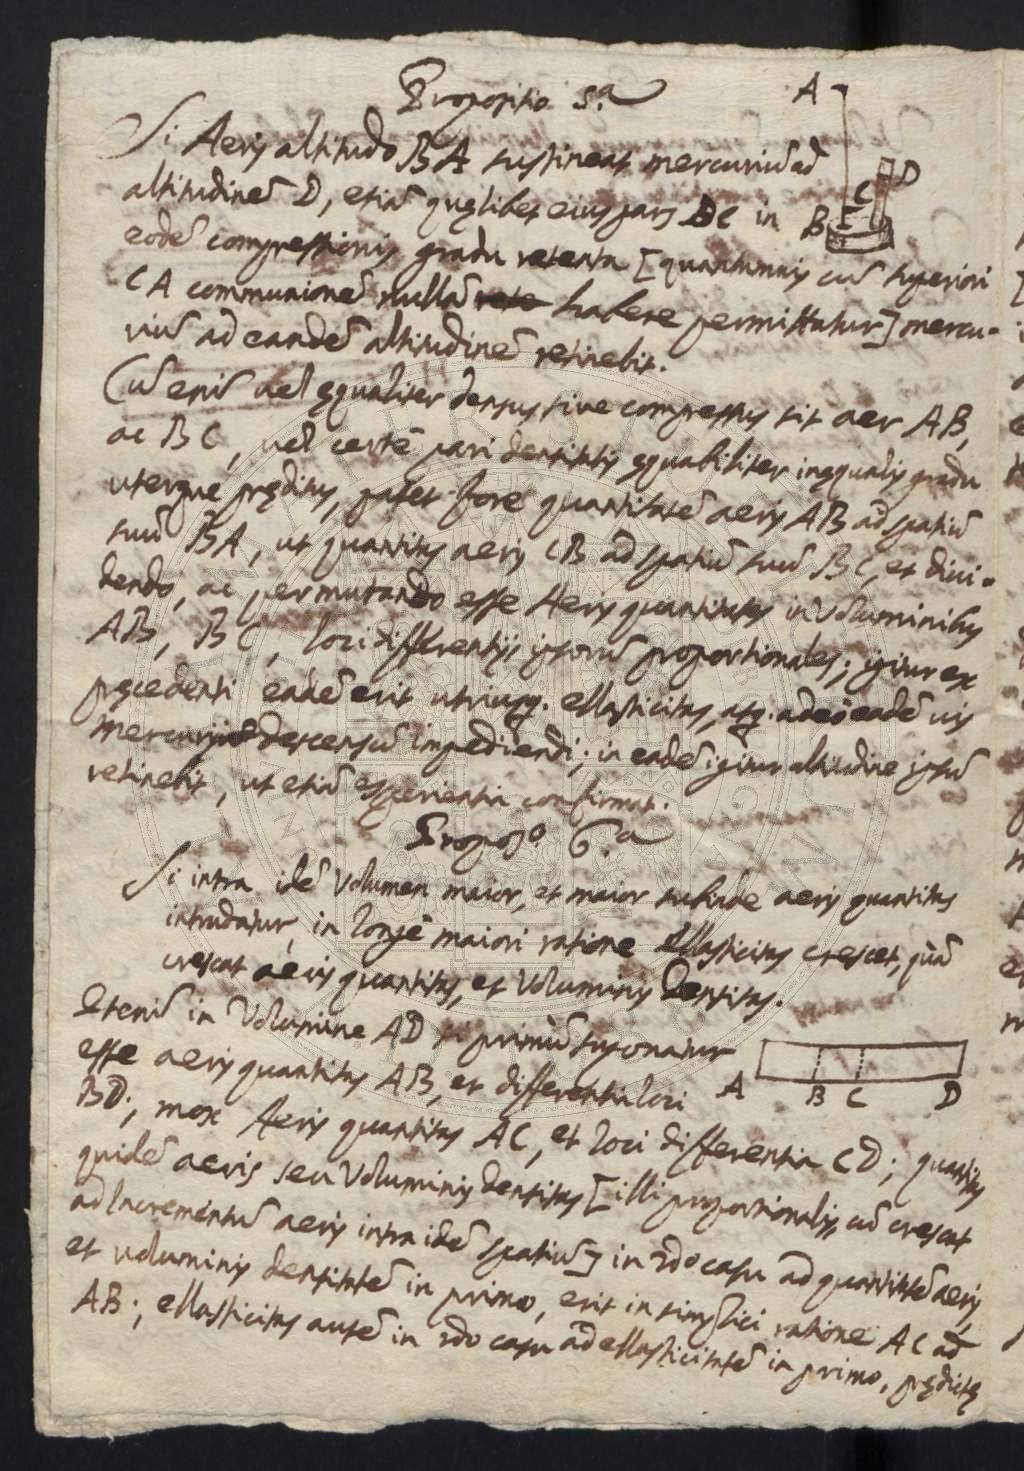 Propositio 5.a
A
Si Aeris altitudo BA sustineat mercuriũ ad
altitudinẽ D, etiã quęlibet eius pars BC in
D
C
B
eodẽ compressionis gradu retenta [quantumvis cũ superiori
CA communionẽ nullã habere permittatur] mercu-
riũ ad eandẽ altitudinẽ retinebit.
Cũ enĩ vel ęqualiter densus sive compressus sit aer AB,
ac BC, vel certè pari densitatis ęquabiliter inęqualis gradu
uterque pręditus, patet fore quantitatẽ aeris AB ad spatiũ
suũ BA, ut quantitas aeris CB ad spatiũ suũ BC, et divi-
dendo, ac permutando esse Aeris quantitates in voluminibus
AB, BC, loci differentijs ipsorũ proportionales; igitur ex
pręcedenti eadẽ erit utriusq. ellasticitas, atq. adeò eadẽ vis
mercurij descensũ impediendi; in eadẽ igitur altitudine ipsũ
retinebit, ut etiã experientia confirmat.
Propos.o 6.a
Si intra idẽ volumen maior, et maior subinde aeris quantitas
intrudatur, in longè maiori ratione ellasticitas crescet, quã
crescat aeris quantitas, et voluminis densitas.
Etenĩ in volumine AD si primũ supponatur
esse aeris quantitas AB, et differentia loci
A B C D
BD; mox Aeris quantitas AC, et loci differentia CD; quantitas
quidẽ aeris seu voluminis densitas [illi proportionalis, cũ crescat
ad Incrementũ aeris intra idẽ spatiũ] in 2do casu ad quantitatẽ aeris,
et voluminis densitatẽ in primo, erit in simplici ratione AC ad
AB; ellasticitas autẽ in 2do casu ad ellasticitatẽ in primo, prędictę